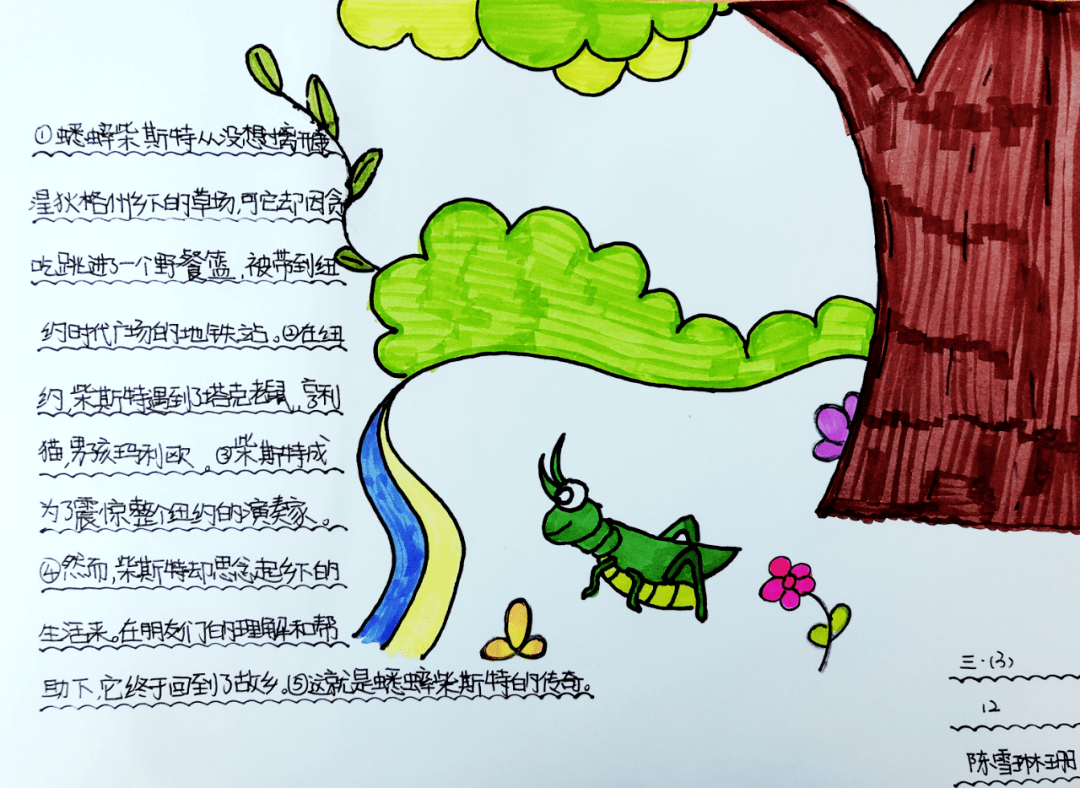 ①蟋蟀柴斯特从没想过离开康
涅狄格州乡下的草场,可它却因贪
吃跳进了一个野餐篮,被带到纽
约时代广场的地铁站。②在纽
约,柴斯特遇到了塔克老鼠,亨利
猫,男孩玛利欧。③柴斯特成
为了震惊整个纽约的演奏家。
④然而,柴斯特却思念起乡下的
生活来。在朋友们的理解和帮
助下,它终于回到了故乡。⑤这就是蟋蟀柴斯特的传奇。
三·(3)
12
陈雪琳珊